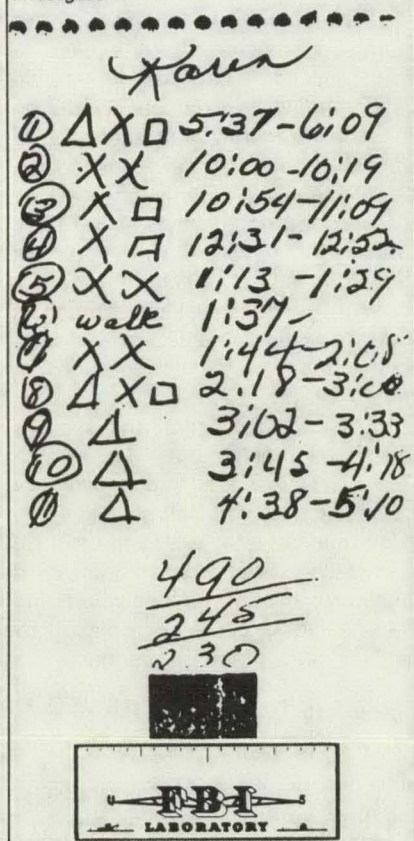 Karen
① △ X □ 5:37-6:09
② X X 10:00-10:19
③ X □ 10:54-11:09
④ X □ 12:31-12:52
⑤ X X 1:13-1:29
⑥ walk 1:37-
⑦ X X 1:44-2:08
⑧ △ X □ 2:18-3:00
⑨ △ 3:02-3:33
⑩ △ 3:45-4:18
⑪ △ 4:38-5:10
490
245
230
U S
FBI
LABORATORY